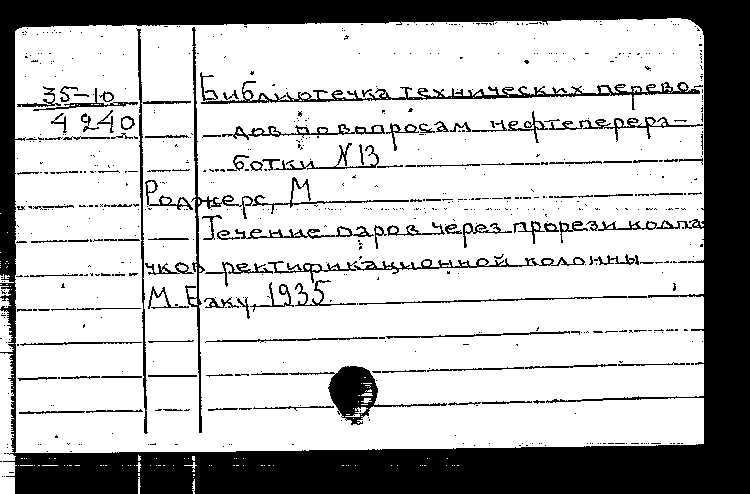 35-10
4240
Библиотечка технических перево-
дов по вопросам нефтеперера-
ботки N13
Роджерс, М
Течение паров через прорези колпа
чков ректификационной колонны
М. Баку, 1935